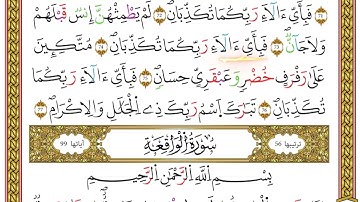 فَبِأَيِّ ءَالَآءِ رَبِّكُمَا تُكَذِّبَانِ لَمْ يَطْمِثْهُنَّ إِنسٌ قَبْلَهُمْ
وَلَا جَآنٌّ فَبِأَيِّ ءَالَآءِ رَبِّكُمَا تُكَذِّبَانِ مُتَّكِـِٔينَ
عَلَىٰ رَفْرَفٍ خُضْرٍ وَعَبْقَرِيٍّ حِسَانٍ فَبِأَيِّ ءَالَآءِ رَبِّكُمَا
تُكَذِّبَانِ تَبَٰرَكَ ٱسْمُ رَبِّكَ ذِى ٱلْجَلَٰلِ وَٱلْإِكْرَامِ
ترتيبها 56 سُورَةُ الْوَاقِعَةِ آياتها 99
بِسْمِ ٱللَّهِ ٱلرَّحْمَٰنِ ٱلرَّحِيمِ